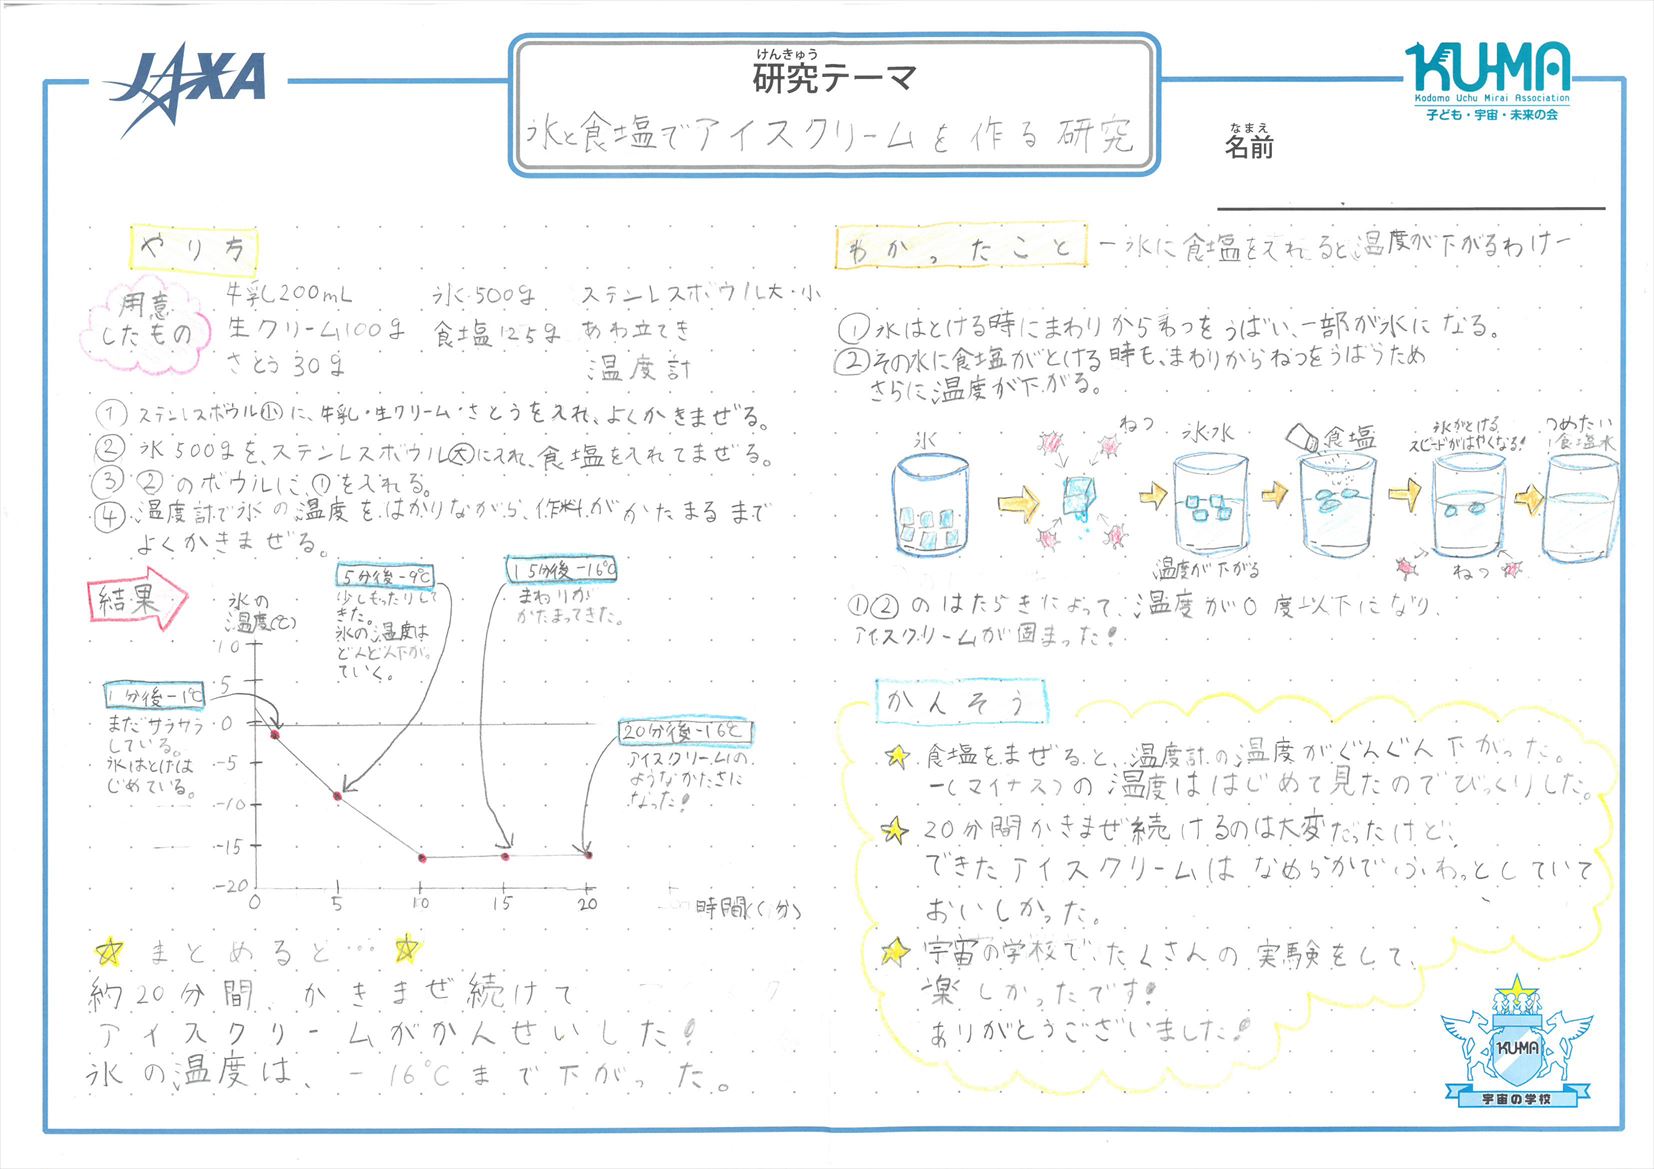 JAXA
けんきゅう
研究テーマ
氷と食塩でアイスクリームを作る研究
KU-MA
Kodomo Uchu Mirai Association
子ども・宇宙・未来の会
なまえ
名前
やり方
用意
したもの
牛乳200mL
生クリーム100g
さとう30g
氷500g
食塩125g
ステンレスボウル大・小
あわ立てき
温度計
① ステンレスボウル小に、牛乳・生クリーム・さとうを入れ、よくかきまぜる。
② 氷500gを、ステンレスボウル大に入れ、食塩を入れてまぜる。
③ ②のボウルに、①を入れる。
④ 温度計で氷の温度をはかりながら、作料がかたまるまで
よくかきまぜる。
結果
氷の
温度(℃)
10
5
0
-5
-10
-15
-20
0
5
10
15
20
時間(分)
1分後-1℃
まだサラサラ
している。
氷はとけは
じめている。
5分後-9℃
少しもったりして
きた。
氷の温度は
どんどん下がっ
ていく。
15分後-16℃
まわりが
かたまってきた。
20分後-16℃
アイスクリームの
ようなかたさに
なった!
まとめると…
約20分間、かきまぜ続けて
アイスクリームがかんせいした!
氷の温度は、-16℃まで下がった。
わかったこと
-氷に食塩を入れると温度が下がるわけ-
① 氷はとける時にまわりからねつをうばい、一部が水になる。
② その水に食塩がとける時も、まわりからねつをうばうため
さらに温度が下がる。
氷
ねつ
氷水
温度が下がる
食塩
氷がとける
スピードがはやくなる!
ねつ
つめたい
食塩水
①②のはたらきによって、温度が0度以下になり、
アイスクリームが固まった!
かんそう
食塩をまぜると、温度計の温度がぐんぐん下がった。
-(マイナス)の温度ははじめて見たのでびっくりした。
20分間かきまぜ続けるのは大変だったけど、
できたアイスクリームはなめらかでふわっとしていて
おいしかった。
宇宙の学校で、たくさんの実験をして、
楽しかったです!
ありがとうございました!
KU-MA
宇宙の学校